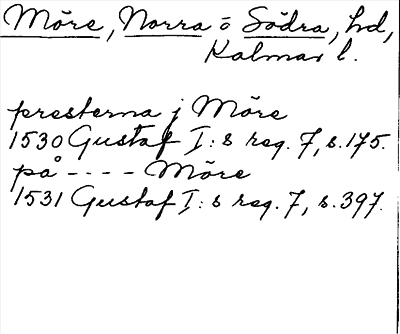 Möre, Norra o Södra, hd,
Kalmar l.
presterna j Möre
1530 Gustaf I:s reg. 7, s. 175.
på - - - - Möre
1531 Gustaf I:s reg. 7, s. 397.